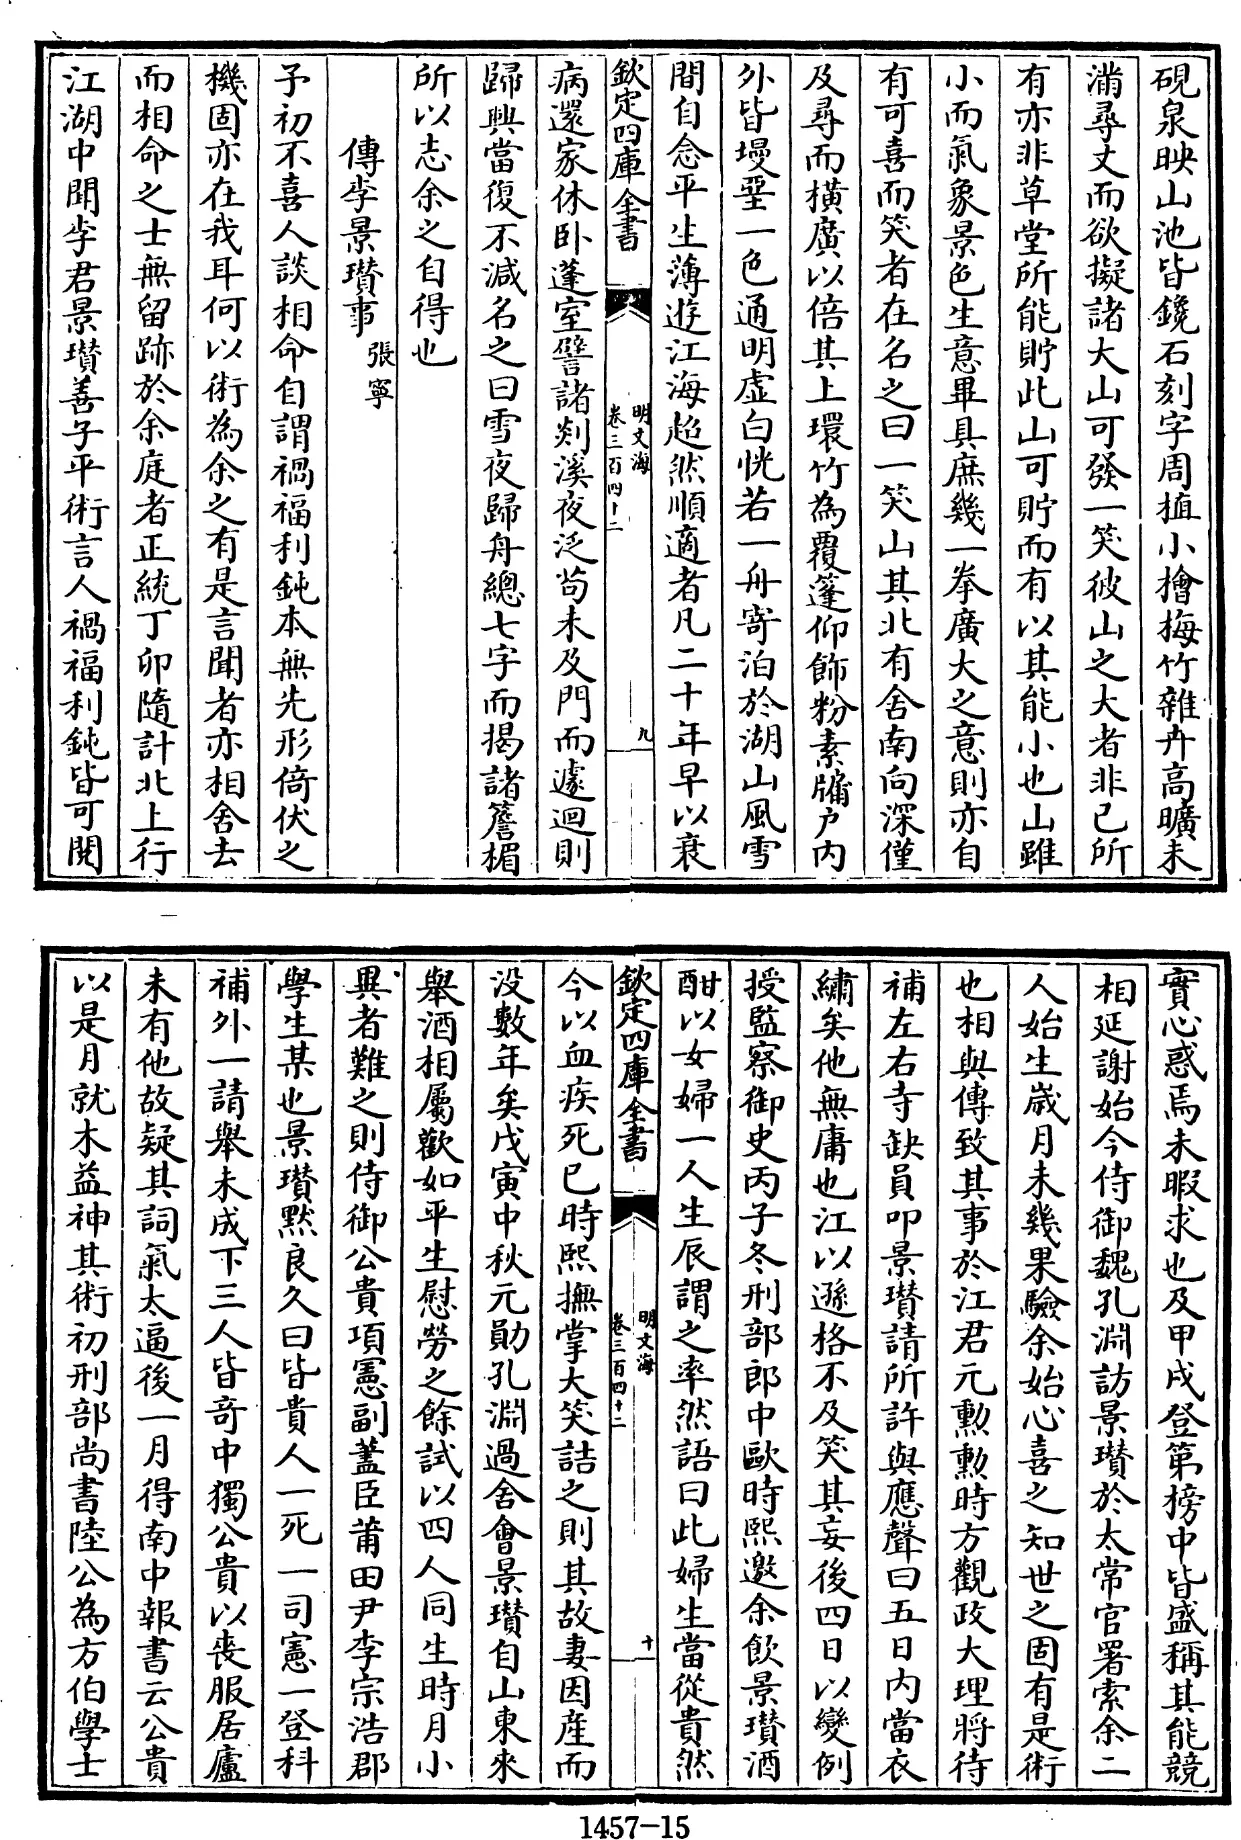 硯泉映山池皆鑱石刻字周植小檜梅竹雜卉高曠未
滿尋丈而欲擬諸大山可發一笑彼山之大者非已所
有亦非草堂所能貯此山可貯而有以其能小也山雖
小而氣象景色生意畢具庶幾一拳廣大之意則亦自
有可喜而笑者在名之曰一笑山其北有舍南向深僅
及尋而橫廣以倍其上環竹為覆篷仰飾粉素牗户内
外皆墁堊一色通明虚白恍若一舟寄泊於湖山風雪
間自念平生薄遊江海超然順適者凡二十年早以衰
欽定四庫全書
明文海
卷三百四十二
九
病還家休卧蓬室譬諸剡溪夜泛茍未及門而遽迴則
歸興當復不減名之曰雪夜歸舟總七字而揭諸簷楣
所以志余之自得也
傳李景瓚事 張寧
予初不喜人談相命自謂禍福利鈍本無先形倚伏之
機固亦在我耳何以術為余之有是言聞者亦相舍去
而相命之士無留跡於余庭者正統丁卯隨計北上行
江湖中聞李君景瓚善子平術言人禍福利鈍皆可閱
實心惑焉未暇求也及甲戌登第榜中皆盛稱其能競
相延謝始今侍御魏孔淵訪景瓚於太常官署索余二
人始生嵗月未幾果驗余始心喜之知世之固有是術
也相與傳致其事於江君元勲勲時方觀政大理將待
補左右寺缺員叩景瓚請所許與應聲曰五日内當衣
繡矣他無庸也江以遜格不及笑其妄後四日以變例
授監察御史丙子冬刑部郎中歐時熙邀余飲景瓚酒
酣以女婦一人生辰謂之率然語曰此婦生當從貴然
欽定四庫全書
明文海
卷三百四十二
十
今以血疾死已時熙撫掌大笑詰之則其故妻因産而
没數年矣戊寅中秋元勛孔淵過舍會景瓚自山東來
舉酒相屬歡如平生慰勞之餘試以四人同生時月小
異者難之則侍御公貴項憲副藎臣莆田尹李宗浩郡
學生某也景瓚黙良久曰皆貴人一死一司憲一登科
補外一請舉未成下三人皆竒中獨公貴以喪服居廬
未有他故疑其詞氣太逼後一月得南中報書云公貴
以是月就木益神其術初刑部尚書陸公為方伯學士
1457-15